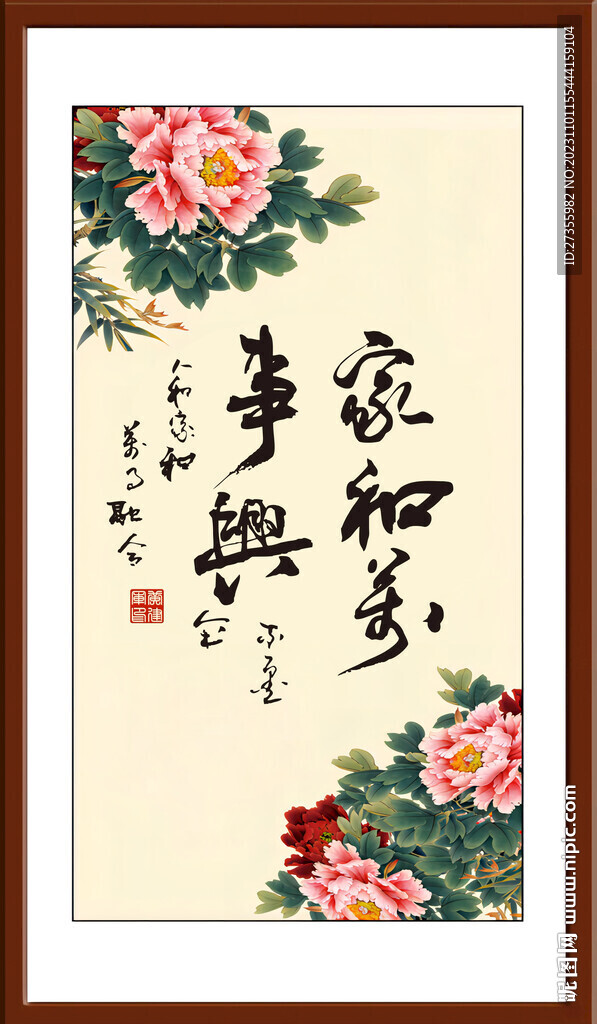 家和萬
事興
人和家和
萬事融合
ID:27355982 NO:20231101155444159104
昵图网 www.nipic.com